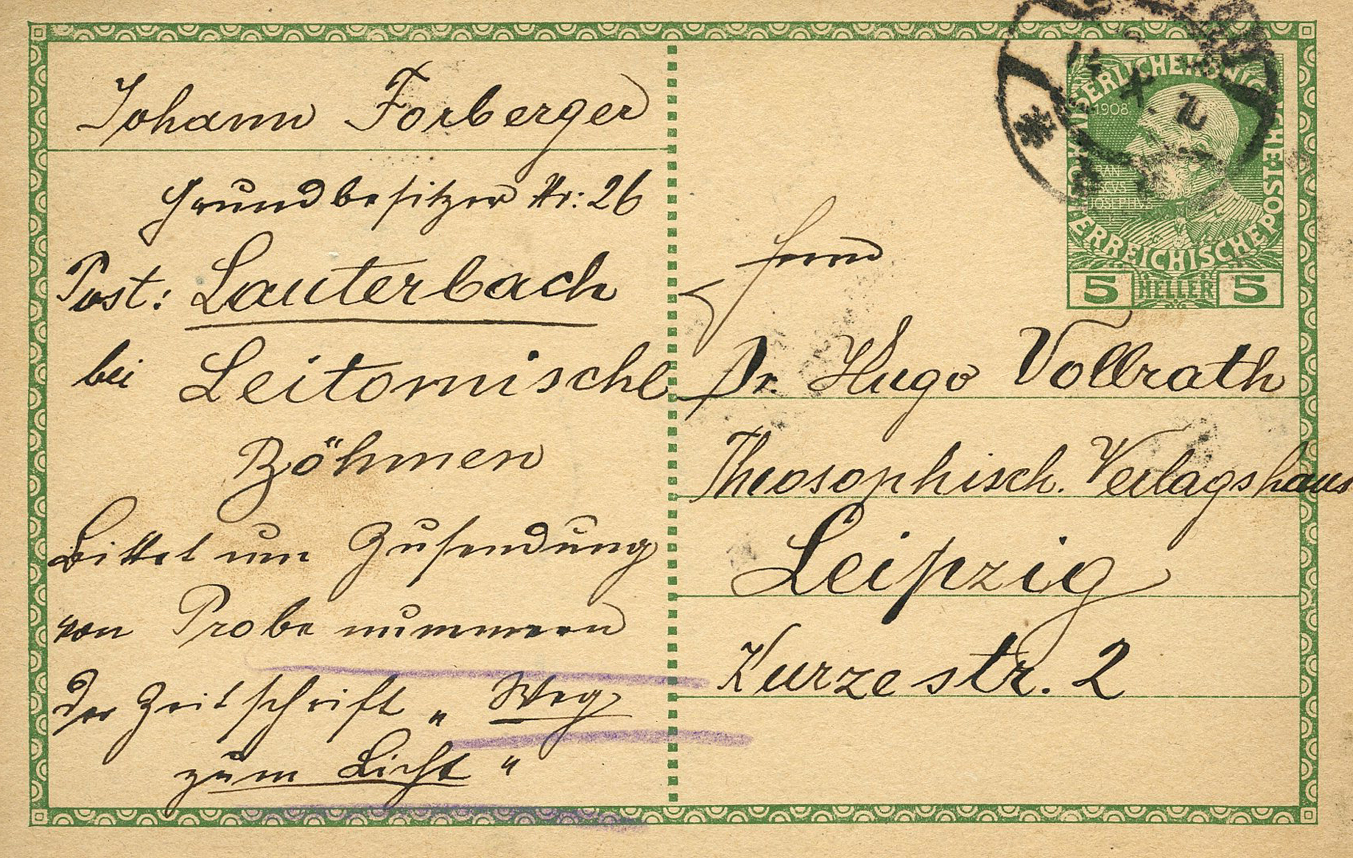 Johann Forberger
Grundbesitzer Nr: 26
Post: Lauterbach
bei Leitomischl
Böhmen
Bittet um Zusendung
von Probenummern
der Zeitschrift „Weg
zum Licht“
Herrn
Dr. Hugo Vollrath
Theosophisch. Verlagshaus
Leipzig
Kurzestr. 2
1908
5 HELLER 5